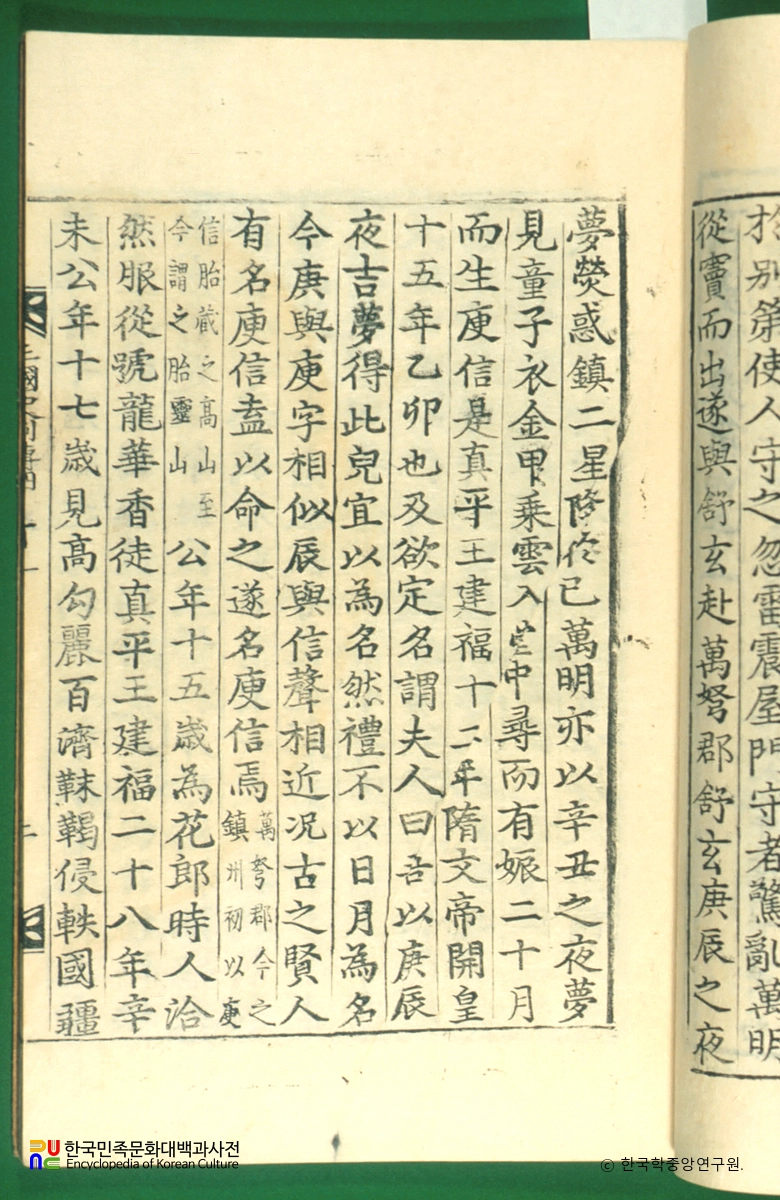 於别第使人守之忽雷震屋門守者驚亂萬明
從竇而出遂與舒玄赴萬弩郡舒玄庚辰之夜
夢熒惑鎮二星降於已萬明亦以辛丑之夜夢
見童子衣金甲乗雲入堂中尋而有娠二十月
而生庾信是真平王建福十二年隋文帝開皇
十五年乙卯也及欲定名謂夫人曰吾以庚辰
夜吉夢得此兒宜以為名然禮不以日月為名
今庚與庾字相似辰與信聲相近况古之賢人
有名庾信盍以命之遂名庾信焉萬弩郡今之鎮州初以庾
信胎蔵之髙山至今謂之胎靈山公年十五歲為花郎時人洽
然服從號龍華香徒真平王建福二十八年辛
未公年十七歲見髙勾麗百濟靺鞨侵軼國疆
한국민족문화대백과사전
Encyclopedia of Korean Culture
© 한국학중앙연구원.